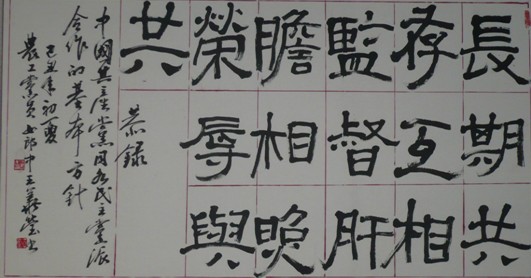 長期共
存互相
監督肝
膽相照
榮辱與
共
恭錄
中國共產黨同各民主黨派
合作的基本方針
己丑年初夏
農工黨員